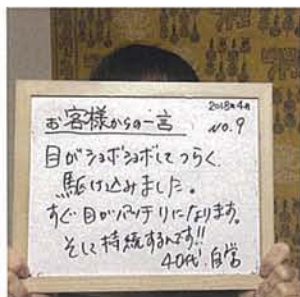 2018年4月
お客様からの一言 NO.9
目がショボショボしてつらく、
駆け込みました。
すぐ目がパッチリになります。
そして持続するんです!!
40代 自営